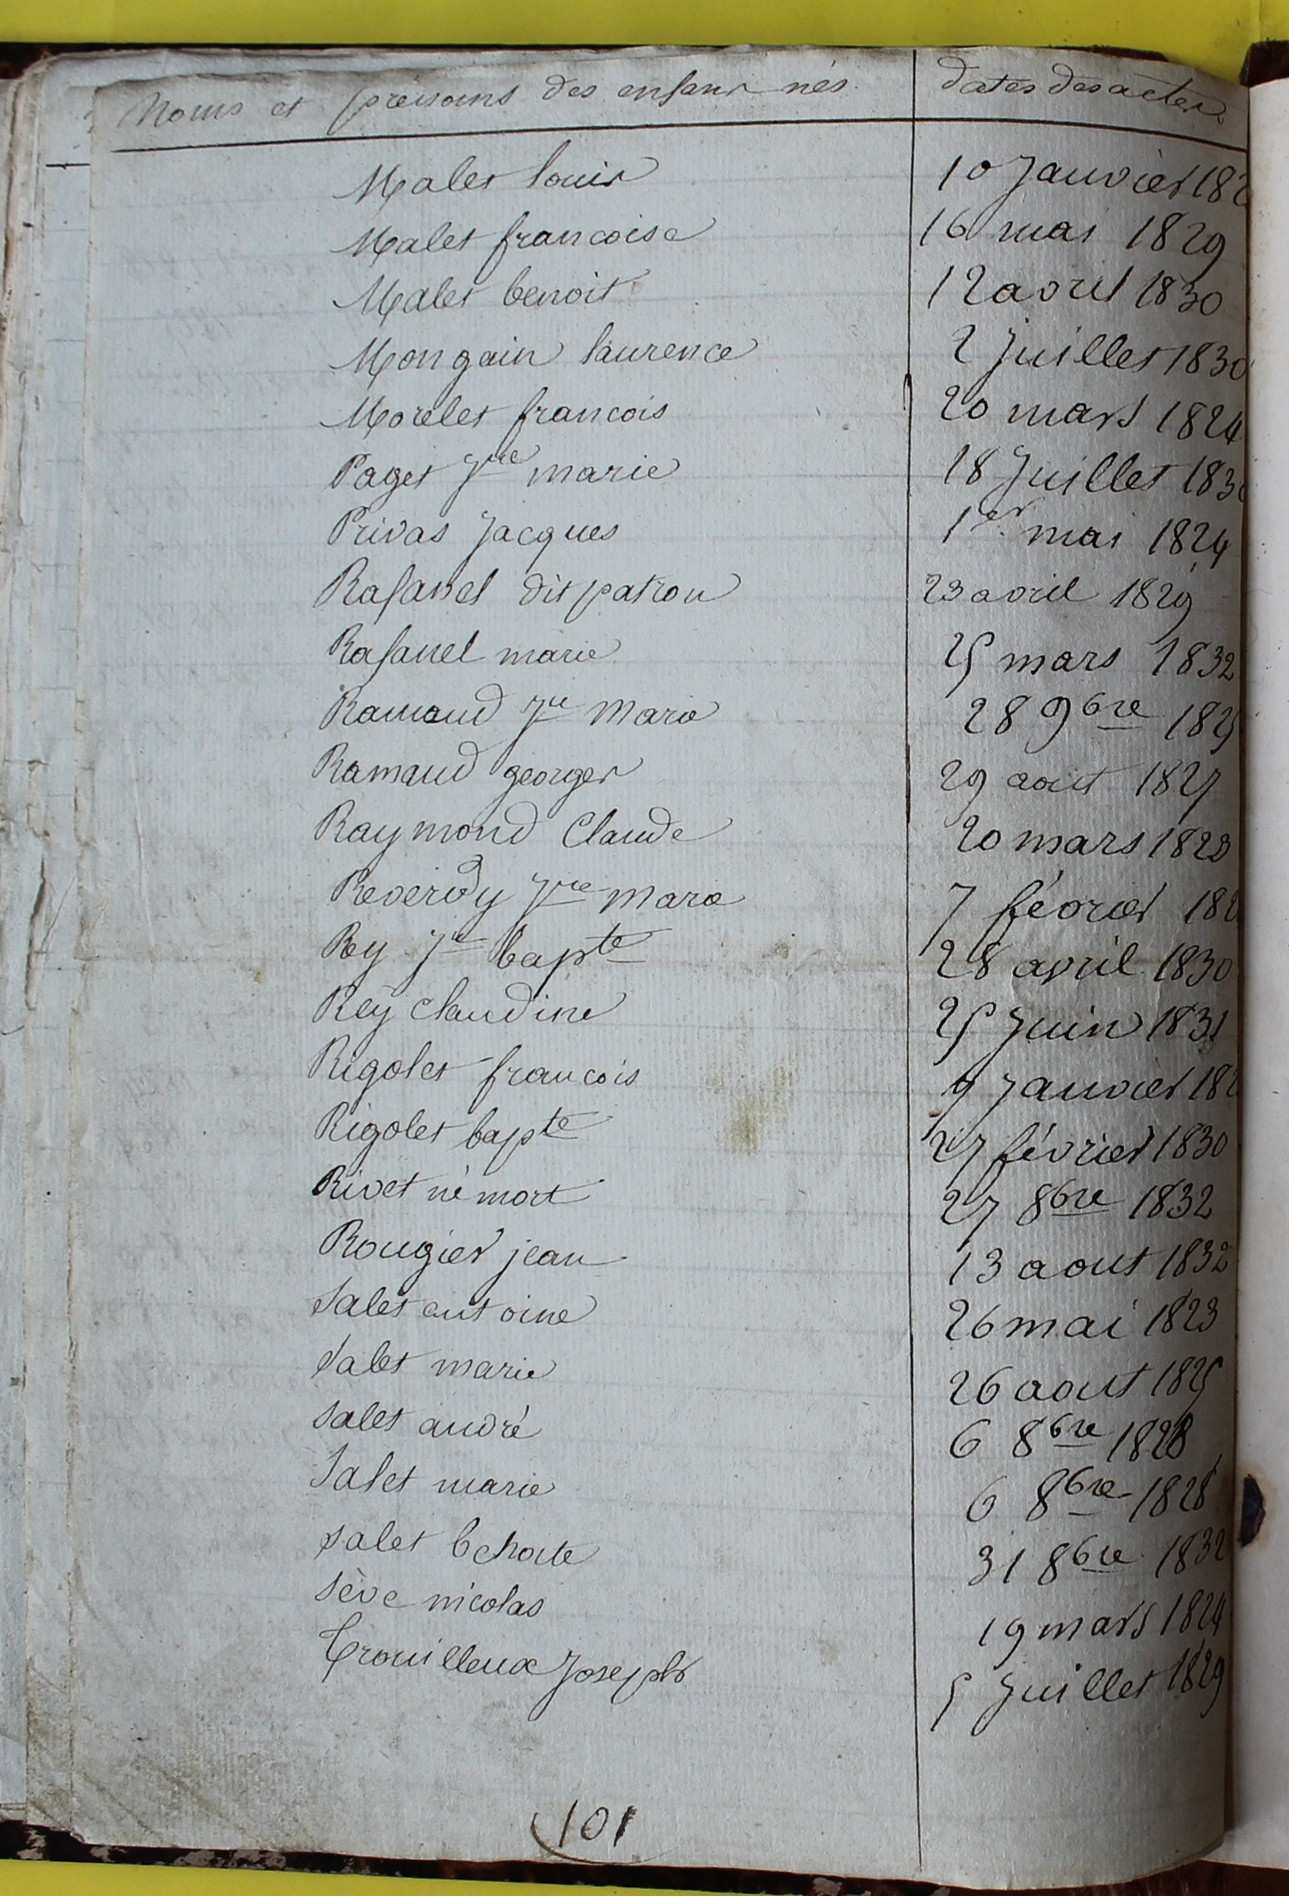 Noms et prénoms des enfans nés dates des actes
Malet louis 10 Janvier
Malet francoise 16 mai 1829
Malet benoit 12 avril 1830
Mongain laurence 2 Juillet 1830
Morelet francois 20 mars 1824
Paget Jne marie 18 Juillet
Privas Jacques 1er mai 1824
Rafanel dit patron 23 avril 1829
Rafanel marie 25 mars 1832
Ramaud Jne Marie 28 9bre 1825
Ramaud georges 29 aout 1827
Raymond Claude 20 mars 1823
Reverdy Jne Marie 7 février
Rey Jn bapte 28 avril 1830
Rey claudine 25 Juin 1831
Rigolet francois 9 Janvier
Rigolet bapte 27 février 1830
Rivet né mort 27 8bre 1832
Rougier jean 13 aout 1832
Salet antoine 26 mai 1823
Salet marie 26 aout 1825
Salet andré 6 8bre 1828
Salet marie 6 8bre 1828
Salet 31 8bre 1832
Sève nicolas 19 mars 1824
Trouilleux Joseph 5 Juillet 1829
101